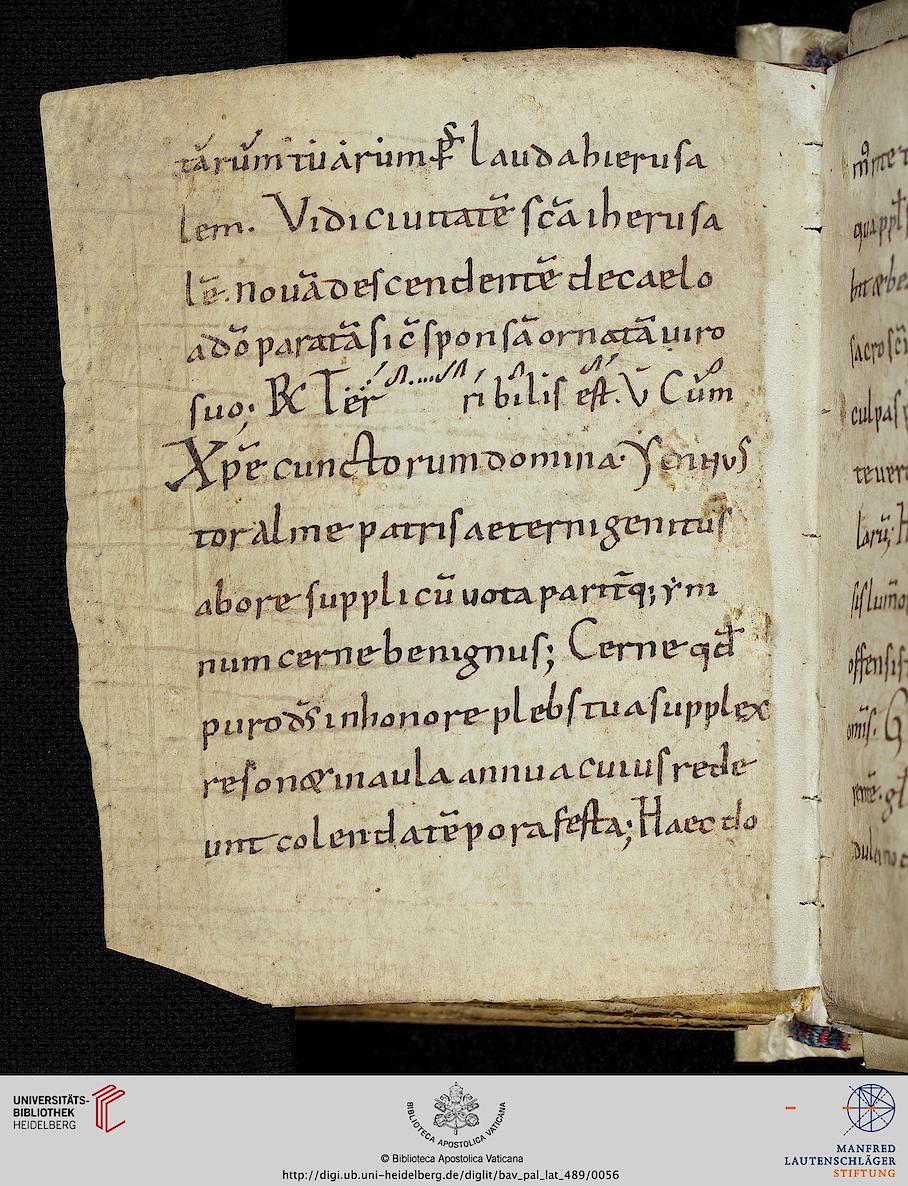 tarum tuarum ps̄ Lauda hierusa
lem. Vidi ciuitatē sc̄a iherusa
lē. nouā descendentē de caelo
a dō paratā sic̄ sponsā ornatā uiro
suo; R Ter ribilis est. V Cum
Xpe cunctorum domina.
tor alme patris aeterni genitus
ab ore supplicū uota parit̄q; ym
num cerne benignus; Cerne qd̄
puro ds̄ in honore plebs tua supplex
resonæ in aula annua cuius rede
unt colenda tēpora festa; Haec do
UNIVERSITÄTS-
BIBLIOTHEK
HEIDELBERG
BIBLIOTECA APOSTOLICA VATICANA
© Biblioteca Apostolica Vaticana
http://digi.ub.uni-heidelberg.de/diglit/bav_pal_lat_489/0056
MANFRED
LAUTENSCHLÄGER
STIFTUNG